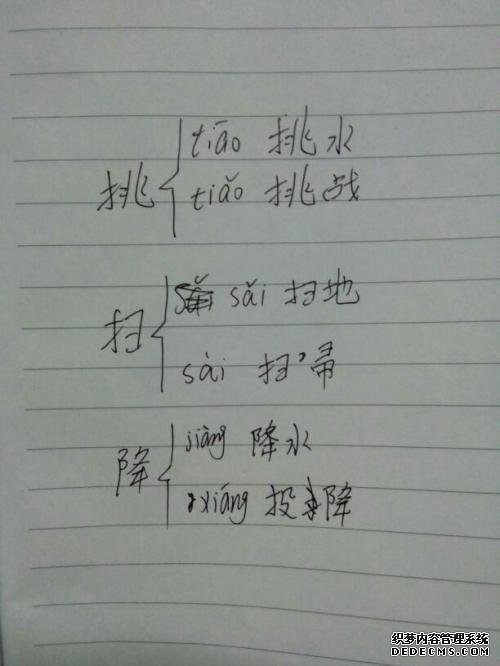 挑
tiāo 挑水
tiǎo 挑战
扫
sǎi 扫地
sài 扫帚
降
jiàng 降水
xiáng 投降
织梦内容管理系统
DEDECMS.COM